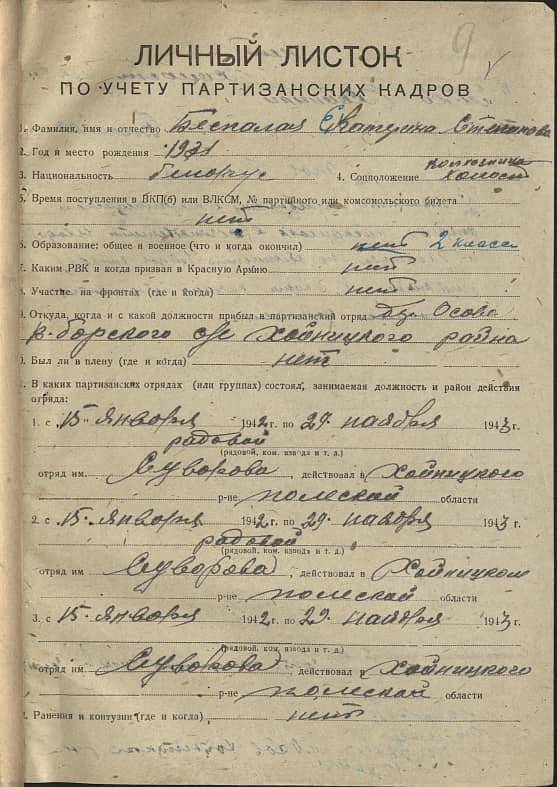 9
ЛИЧНЫЙ ЛИСТОК
ПО УЧЕТУ ПАРТИЗАНСКИХ КАДРОВ
1. Фамилия, имя и отчество Беспалая Екатерина Степанова
2. Год и место рождения
3. Национальность белорус 4. Соцположение колхозница холост
5. Время поступления в ВКП(б) или ВЛКСМ, № партийного или комсомольского билета
нет
6. Образование: общее и военное (что и когда окончил) нет 2 класса
7. Каким РВК и когда призван в Красную Армию нет
8. Участие на фронтах (где и когда) нет
9. Откуда, когда и с какой должности прибыл в партизанский отряд Осов
борского с/с хойницкого района
10. Был ли в плену (где и когда) нет
В каких партизанских отрядах (или группах) состоял, занимаемая должность и район действия
отряда:
1. с „15" января 1942 г. по 29. ноября 1943 г.
рядовой
(рядовой, ком. взвода и т. д.)
отряд им. Суворова, действовал в Хойницкого
р-не полеской области
2. с 15. января 1942 г. по 29. ноября 1943 г.
рядовой
(рядовой, ком. взвода и т. д.)
отряд им Суворова, действовал в Хойницком
р-не полеской области
3. с 15 января 1942 г. по 29. ноября 1943 г.
(рядовой, ком. взвода и т. д.)
отряд им. Суворова, действовал в хойницкого
р-не полеской области
2. Ранения и контузии (где и когда) нет